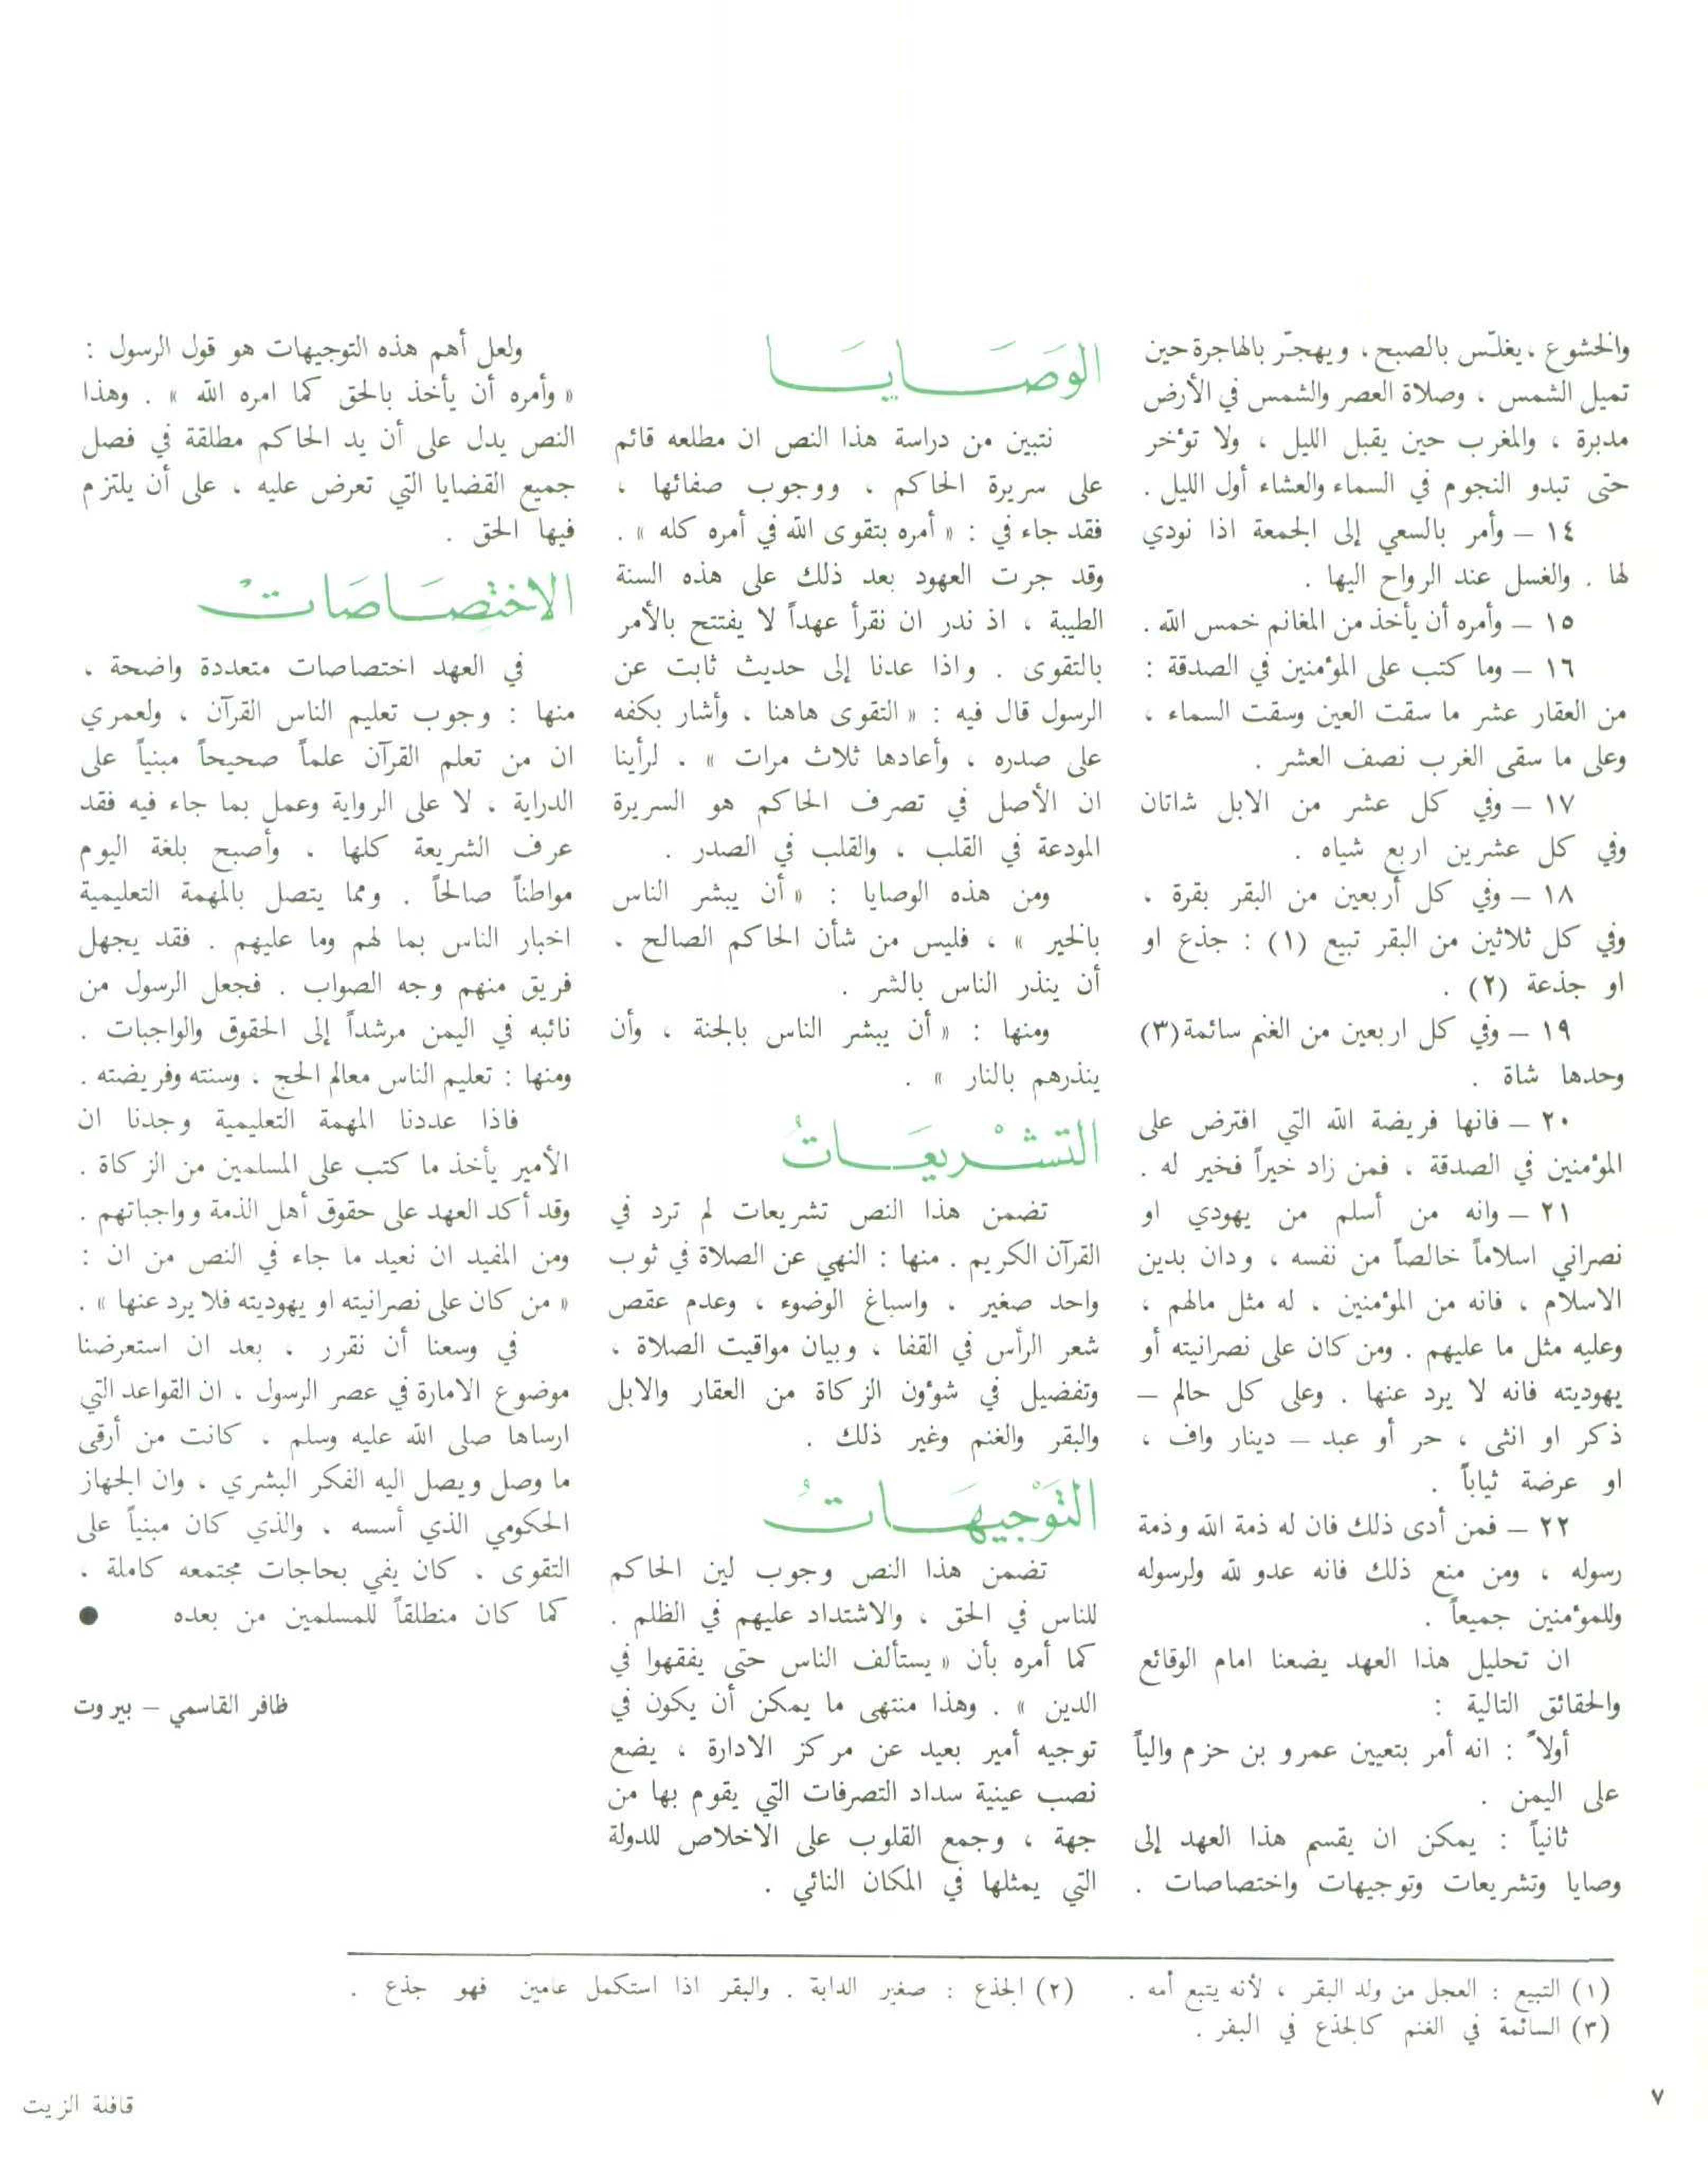 والخشوع ، يغلّس بالصبح ، ويهجّر بالهاجرة حين
تميل الشمس ، وصلاة العصر والشمس في الأرض
مدبرة ، والمغرب حين يقبل الليل ، ولا توٴخر
حتى تبدو النجوم في السماء والعشاء أول الليل .
١٤ – وأمر بالسعي إلى الجمعة اذا نودي
لها . والغسل عند الرواح اليها .
١٥ – وأمره أن يأخذ من المغانم خمس الله .
١٦ – وما كتب على الموٴمنين في الصدقة :
من العقار عشر ما سقت العين وسقت السماء ،
وعلى ما سقى الغرب نصف العشر .
١٧ – وفي كل عشر من الابل شاتان
وفي كل عشرين اربع شياه .
١٨ – وفي كل أربعين من البقر بقرة ،
وفي كل ثلاثين من البقر تبيع (١) : جذع او
او جذعة (٢) .
١٩ – وفي كل اربعين من الغنم سائمة (٣)
وحدها شاة .
٢٠ – فانها فريضة الله التي افترض على
الموٴمنين في الصدقة ، فمن زاد خيراً فخير له .
٢١ – وانه من أسلم من يهودي او
نصراني اسلاماً خالصاً من نفسه ، ودان بدين
الاسلام ، فانه من الموٴمنين ، له مثل مالهم ،
وعليه مثل ما عليهم . ومن كان على نصرانيته أو
يهوديته فانه لا يرد عنها . وعلى كل حالم –
ذكر او انثى ، حر أو عبد – دينار واف ،
او عرضة ثياباً .
٢٢ – فمن أدى ذلك فان له ذمة الله وذمة
رسوله ، ومن منع ذلك فانه عدو لله ولرسوله
وللموٴمنين جميعاً .
ان تحليل هذا العهد يضعنا امام الوقائع
والحقائق التالية :
أولاً : انه أمر بتعيين عمرو بن حزم والياً
على اليمن .
ثانياً : يمكن ان يقسم هذا العهد إلى
وصايا وتشريعات وتوجيهات واختصاصات .
الوَصَايَا
نتبين من دراسة هذا النص ان مطلعه قائم
على سريرة الحاكم ، ووجوب صفائها ،
فقد جاء في : « أمره بتقوى الله في أمره كله » .
وقد جرت العهود بعد ذلك على هذه السنة
الطيبة ، اذ ندر ان نقرأ عهداً لا يفتتح بالأمر
بالتقوى . واذا عدنا إلى حديث ثابت عن
الرسول قال فيه : « التقوى هاهنا ، وأشار بكفه
على صدره ، وأعادها ثلاث مرات » . لرأينا
ان الأصل في تصرف الحاكم هو السريرة
المودعة في القلب ، والقلب في الصدر .
ومن هذه الوصايا : « أن يبشر الناس
بالخير » ، فليس من شأن الحاكم الصالح ،
أن ينذر الناس بالشر .
ومنها : « أن يبشر الناس بالجنة ، وأن
ينذرهم بالنار » .
التشْريعَاتُ
تضمن هذا النص تشريعات لم ترد في
القرآن الكريم . منها : النهي عن الصلاة في ثوب
واحد صغير ، واسباغ الوضوء ، وعدم عقص
شعر الرأس في القفا ، وبيان مواقيت الصلاة ،
وتفضيل في شوٴون الزكاة من العقار والابل
والبقر والغنم وغير ذلك .
التَوْجيهَاتُ
تضمن هذا النص وجوب لين الحاكم
للناس في الحق ، والاشتداد عليهم في الظلم .
كما أمره بأن « يستألف الناس حتى يفقهوا في
الدين » . وهذا منتهى ما يمكن أن يكون في
توجيه أمير بعيد عن مركز الادارة ، يضع
نصب عينية سداد التصرفات التي يقوم بها من
جهة ، وجمع القلوب على الاخلاص للدولة
التي يمثلها في المكان النائي .
ولعل أهم هذه التوجيهات هو قول الرسول :
« وأمره أن يأخذ بالحق كما امره الله » . وهذا
النص يدل على أن يد الحاكم مطلقة في فصل
جميع القضايا التي تعرض عليه ، على أن يلتزم
فيها الحق .
الاختِصَاصَاتْ
في العهد اختصاصات متعددة واضحة ،
منها : وجوب تعليم الناس القرآن ، ولعمري
ان من تعلم القرآن علماً صحيحاً مبنياً على
الدراية ، لا على الرواية وعمل بما جاء فيه فقد
عرف الشريعة كلها ، وأصبح بلغة اليوم
مواطناً صالحاً . ومما يتصل بالمهمة التعليمية
اخبار الناس بما لهم وما عليهم . فقد يجهل
فريق منهم وجه الصواب . فجعل الرسول من
نائبه في اليمن مرشداً إلى الحقوق والواجبات .
ومنها : تعليم الناس معالم الحج ، وسنته وفريضته .
فاذا عددنا المهمة التعليمية وجدنا ان
الأمير يأخذ ما كتب على المسلمين من الزكاة .
وقد أكد العهد على حقوق أهل الذمة وواجباتهم .
ومن المفيد ان نعيد ما جاء في النص من ان :
« من كان على نصرانيته او يهوديته فلا يرد عنها » .
في وسعنا أن نقرر ، بعد ان استعرضنا
موضوع الامارة في عصر الرسول ، ان القواعد التي
ارساها صلى الله عليه وسلم ، كانت من أرقى
ما وصل ويصل اليه الفكر البشري ، وان الجهاز
الحكومي الذي أسسه ، والذي كان مبنياً على
التقوى ، كان يفي بحاجات مجتمعه كاملة ،
كما كان منطلقاً للمسلمين من بعده ●
ظافر القاسمي – بيروت
(١) التبيع : العجل من ولد البقر ، لأنه يتبع أمه . (٢) الجذع : صغير الدابة . والبقر اذا استكمل عامين فهو جذع .
(٣) السائمة في الغنم كالجذع في البقر .
٧
قافلة الزيت